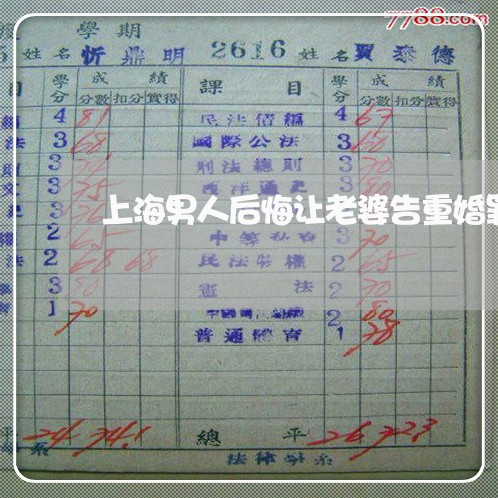 7788.com
學期
5 姓名 忻鼎明 2616 姓名 賈泰德
目 學分 成績 課目 學分 成績
分數 扣分 實得 分數 扣分 實得
4 81 民法債編 4 67
法 3 68 國際公法 3 60
3 刑法總則 3 70
文 3 75 西洋通史 3 80
上海男人后悔让老婆告重婚
2 65 3 70
法 2 68 68 民法物權 2 65
3 80 憲法 2 70
1 70 2 80
普通體育 1 78
平 24 74.1 總平 26 72.3
系 法律學系